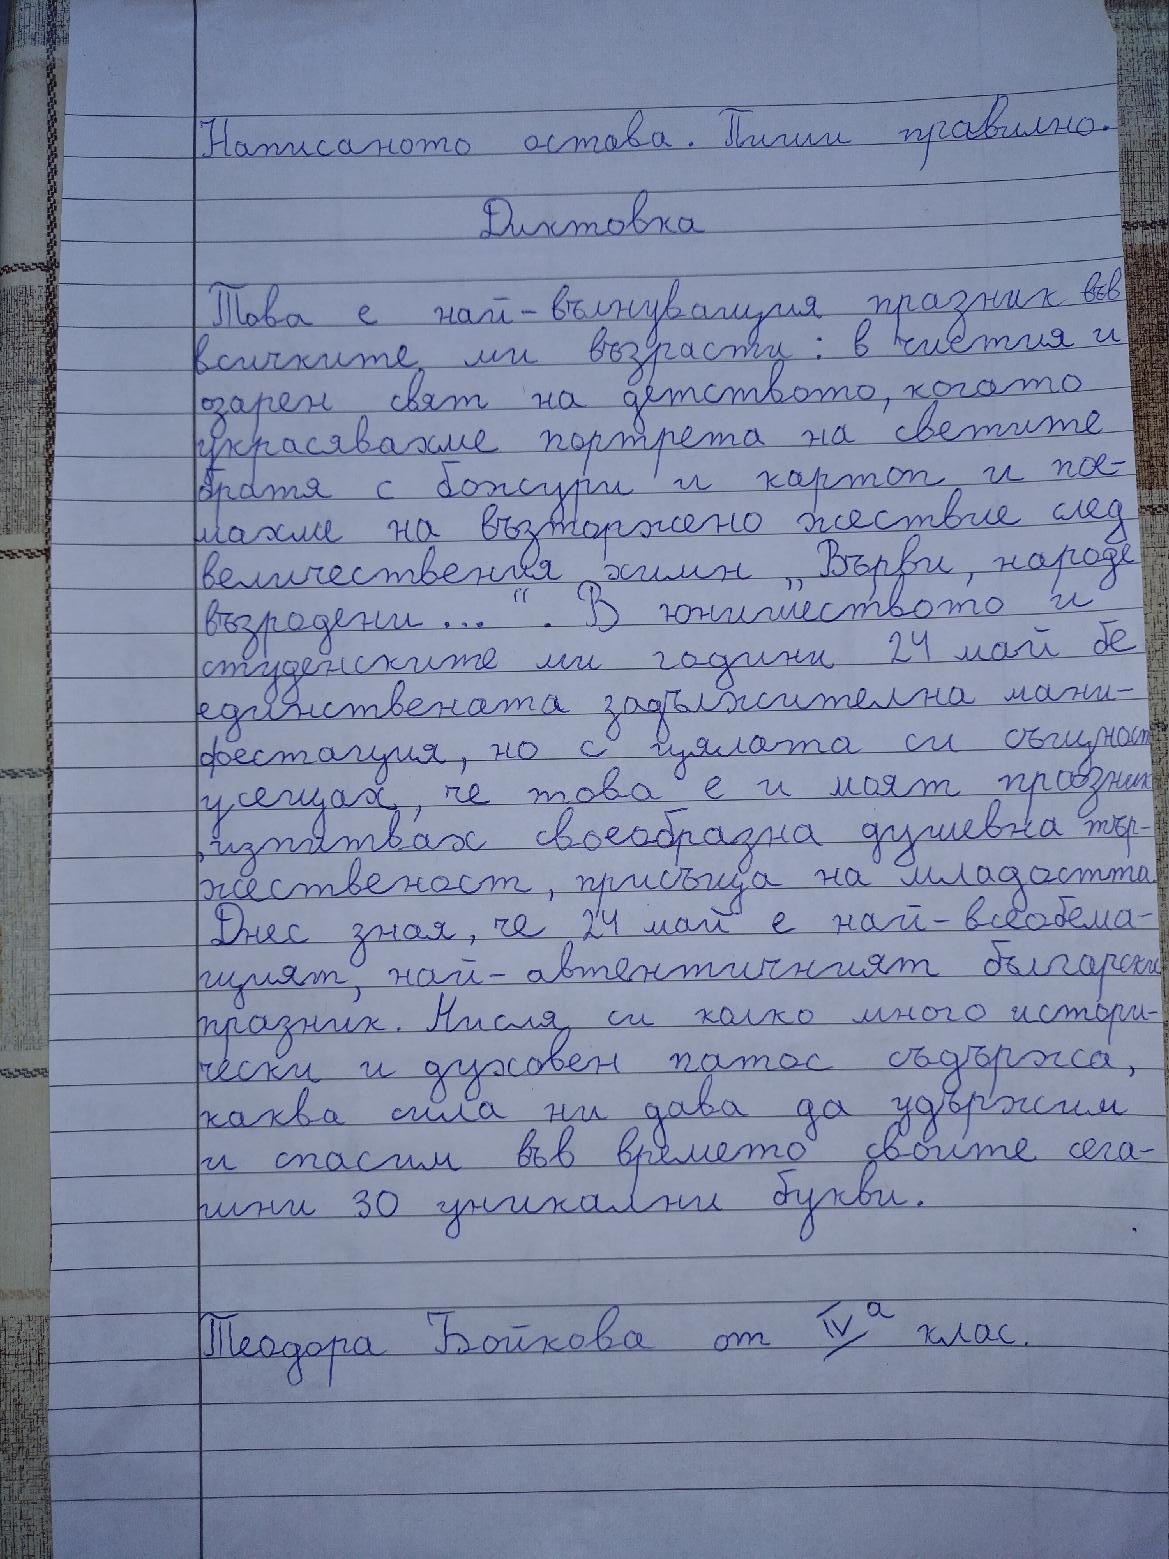 Написаното остава. Пиши правилно.
Диктовка
Това е най-вълнуващия празник във
всичките ми възрасти: в чистия и
озарен свят на детството, когато
украсявахме портрета на светите
братя с божури и картоп и пое-
махме на възторжено жествие след
величествения химн „Върви, народе
възродени..." . В юнишеството и
студенските ми години 24 май бе
единствената задължителна мани-
фестация, но с цялата си същност
усещах, че това е и моят празник
, изпитвах своеобразна душевна тър-
жественост, присъща на младостта.
Днес зная, че 24 май е най-всеобема-
щият, най-автентичният български
празник. Мисля си колко много истори-
чески и духовен патос съдържа,
каква сила ни дава да удържим
и спасим във времето своите сега-
шни 30 уникални букви.
Теодора Бойкова от IVᵃ клас.